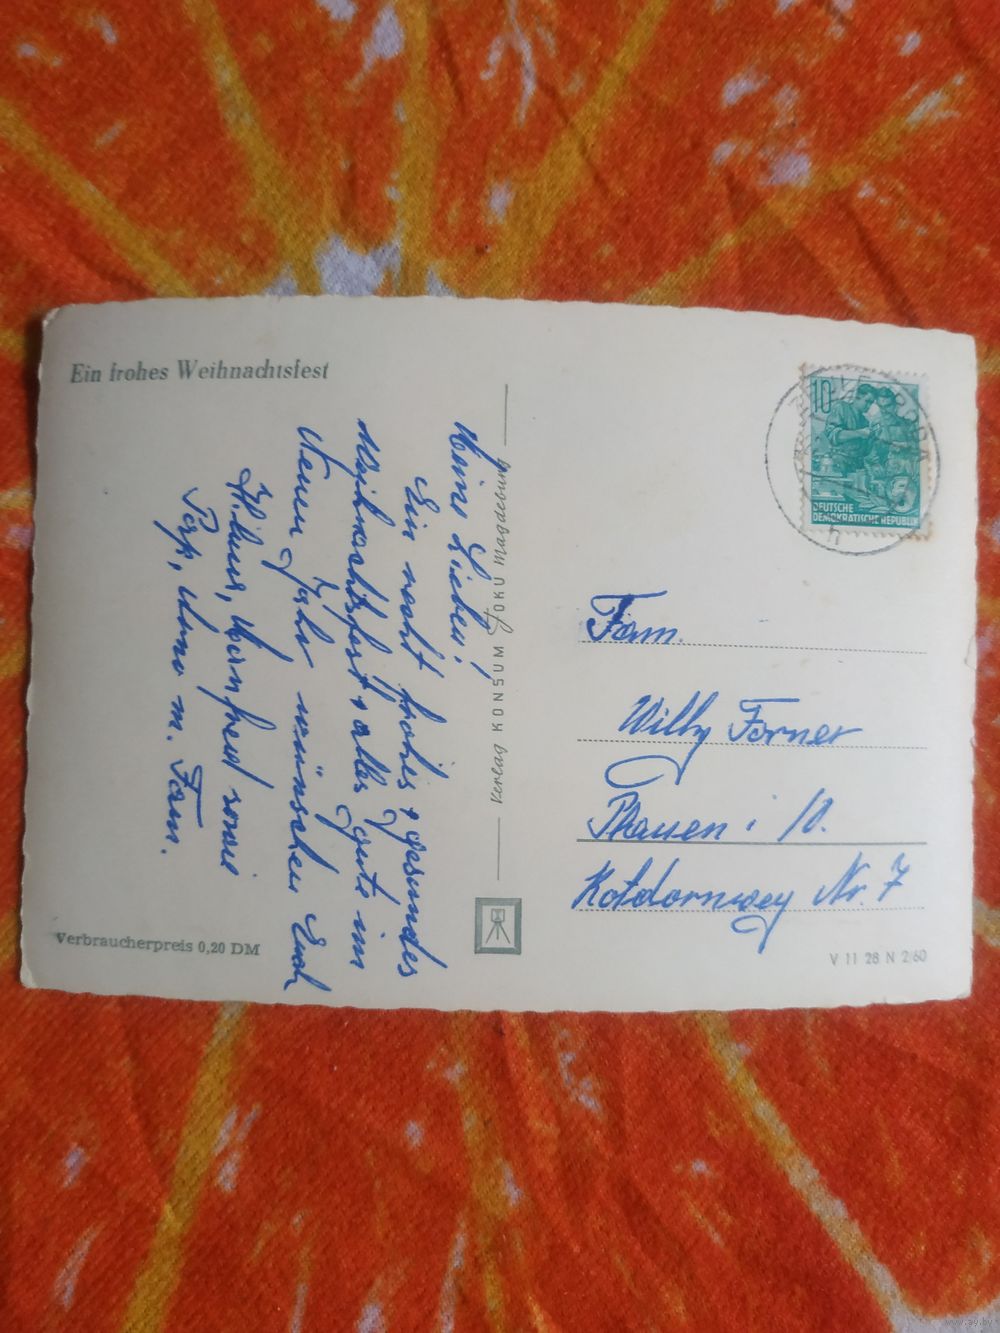 Ein frohes Weihnachtsfest
Meine Lieben!
Ein recht frohes + gesundes
Weihnachtsfest + alles Gute im
Neuen Jahr wünschen Euch
Manfred sowie
m. Fam.
Verbraucherpreis 0,20 DM
Verlag KONSUM FOKU Magdeburg
10
DEUTSCHE
DEMOKRATISCHE REPUBLIK
5
Fam.
Willy Forner
Plauen i/V.
Rotdornweg Nr. 7
V 11 28 N 2/60
www.ay.by